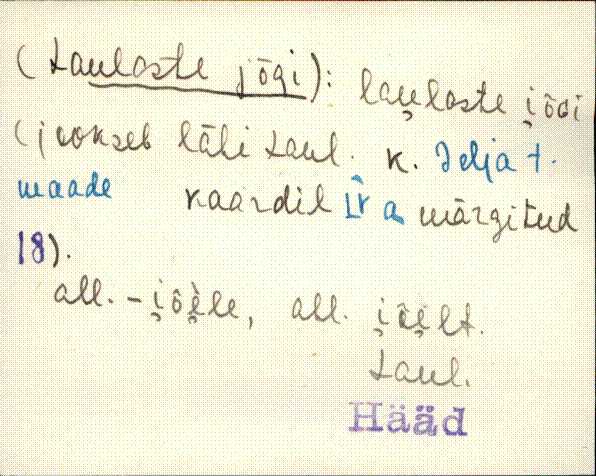 (Laulaste jõgi): lau̯laste i̯õɢi
(jookseb läbi Laul. k. Selja t.
maade kaardil I V a märgitud
18).
all. -i̯õèle, all. i̯õi̯lt.
Laul.
Hääd